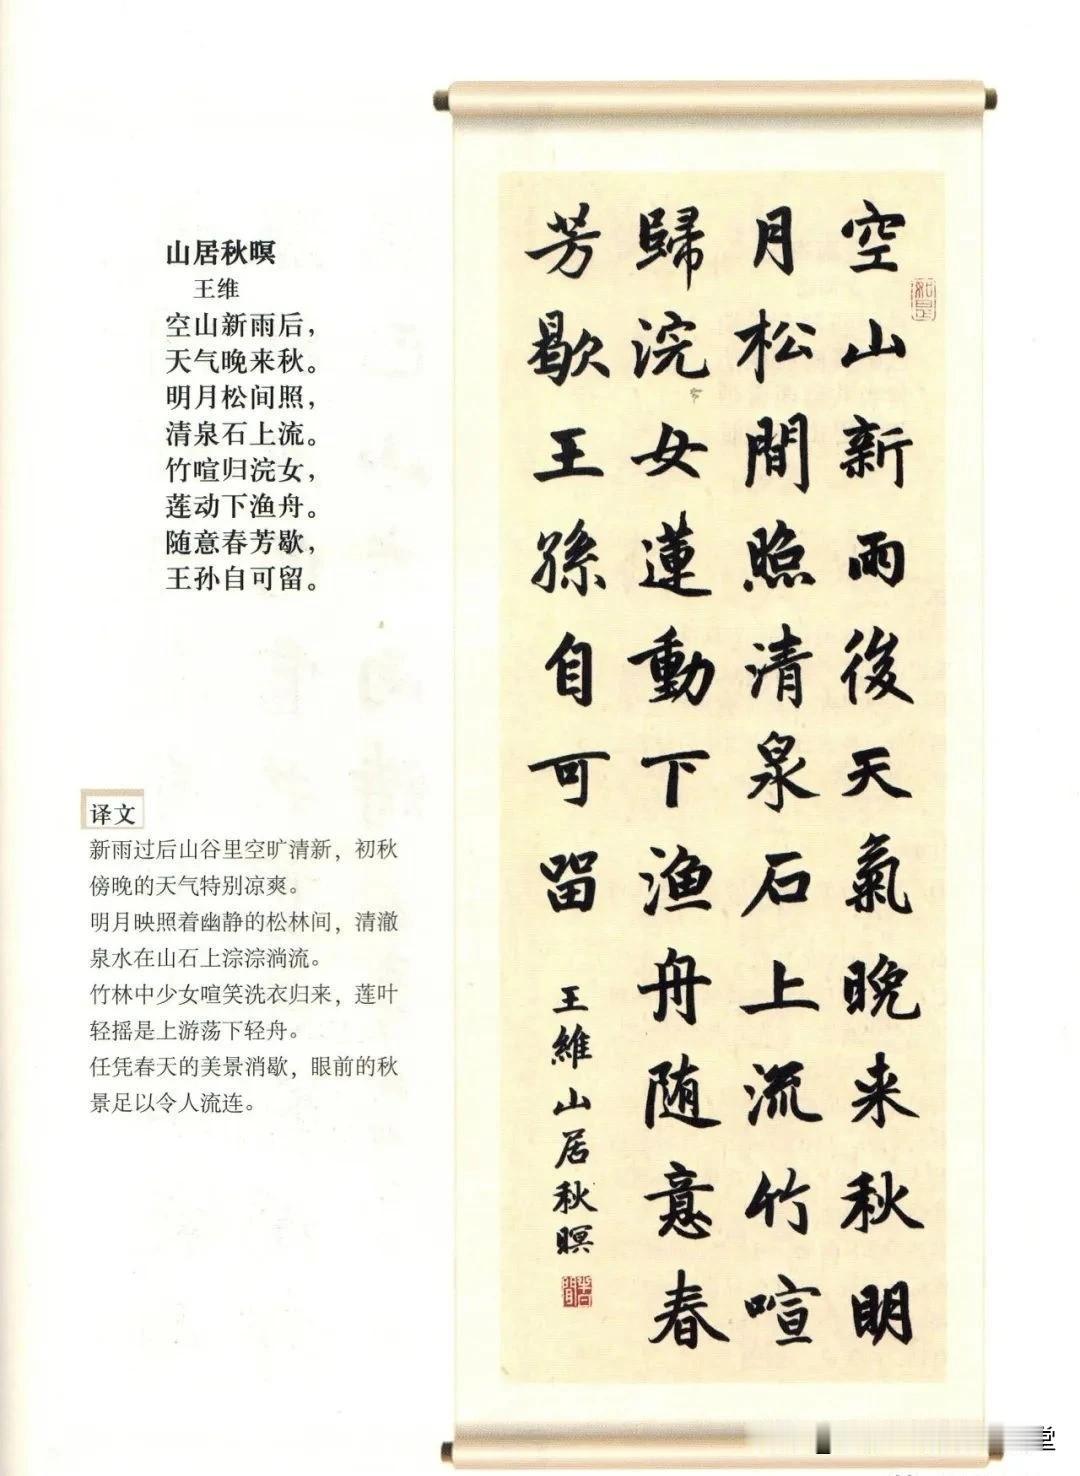 山居秋暝
王维
空山新雨后，
天气晚来秋。
明月松间照，
清泉石上流。
竹喧归浣女，
莲动下渔舟。
随意春芳歇，
王孙自可留。
译文
新雨过后山谷里空旷清新，初秋
傍晚的天气特别凉爽。
明月映照着幽静的松林间，清澈
泉水在山石上淙淙淌流。
竹林中少女喧笑洗衣归来，莲叶
轻摇是上游荡下轻舟。
任凭春天的美景消歇，眼前的秋
景足以令人流连。
空山新雨後天氣晚来秋明
月松間照清泉石上流竹喧
歸浣女蓮動下渔舟随意春
芳歇王孫自可留
王維山居秋暝
如是
堂